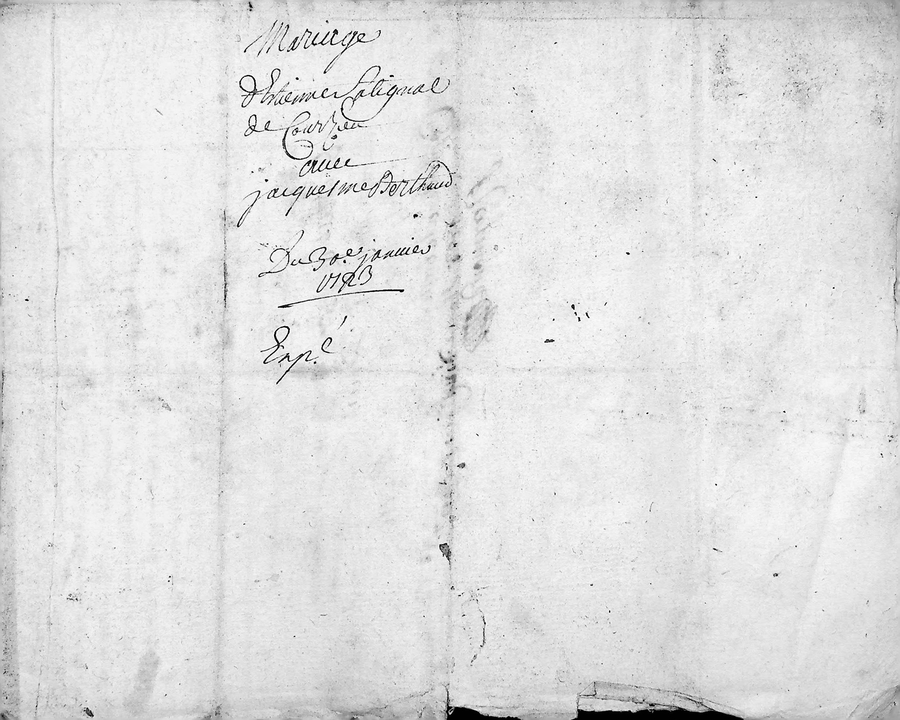 Mariage
d'Estienne Solignac
de Courzeu
avec
jacquesme Berthaud
Du 30e janvier
1723
Exp.é